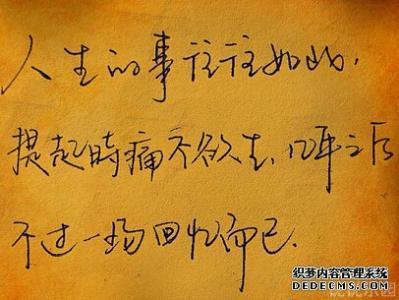 人生的事往往如此，
提起時痛不欲生，几年之后
不过一场回忆而已.
织梦内容管理系统
DEDECMS.COM